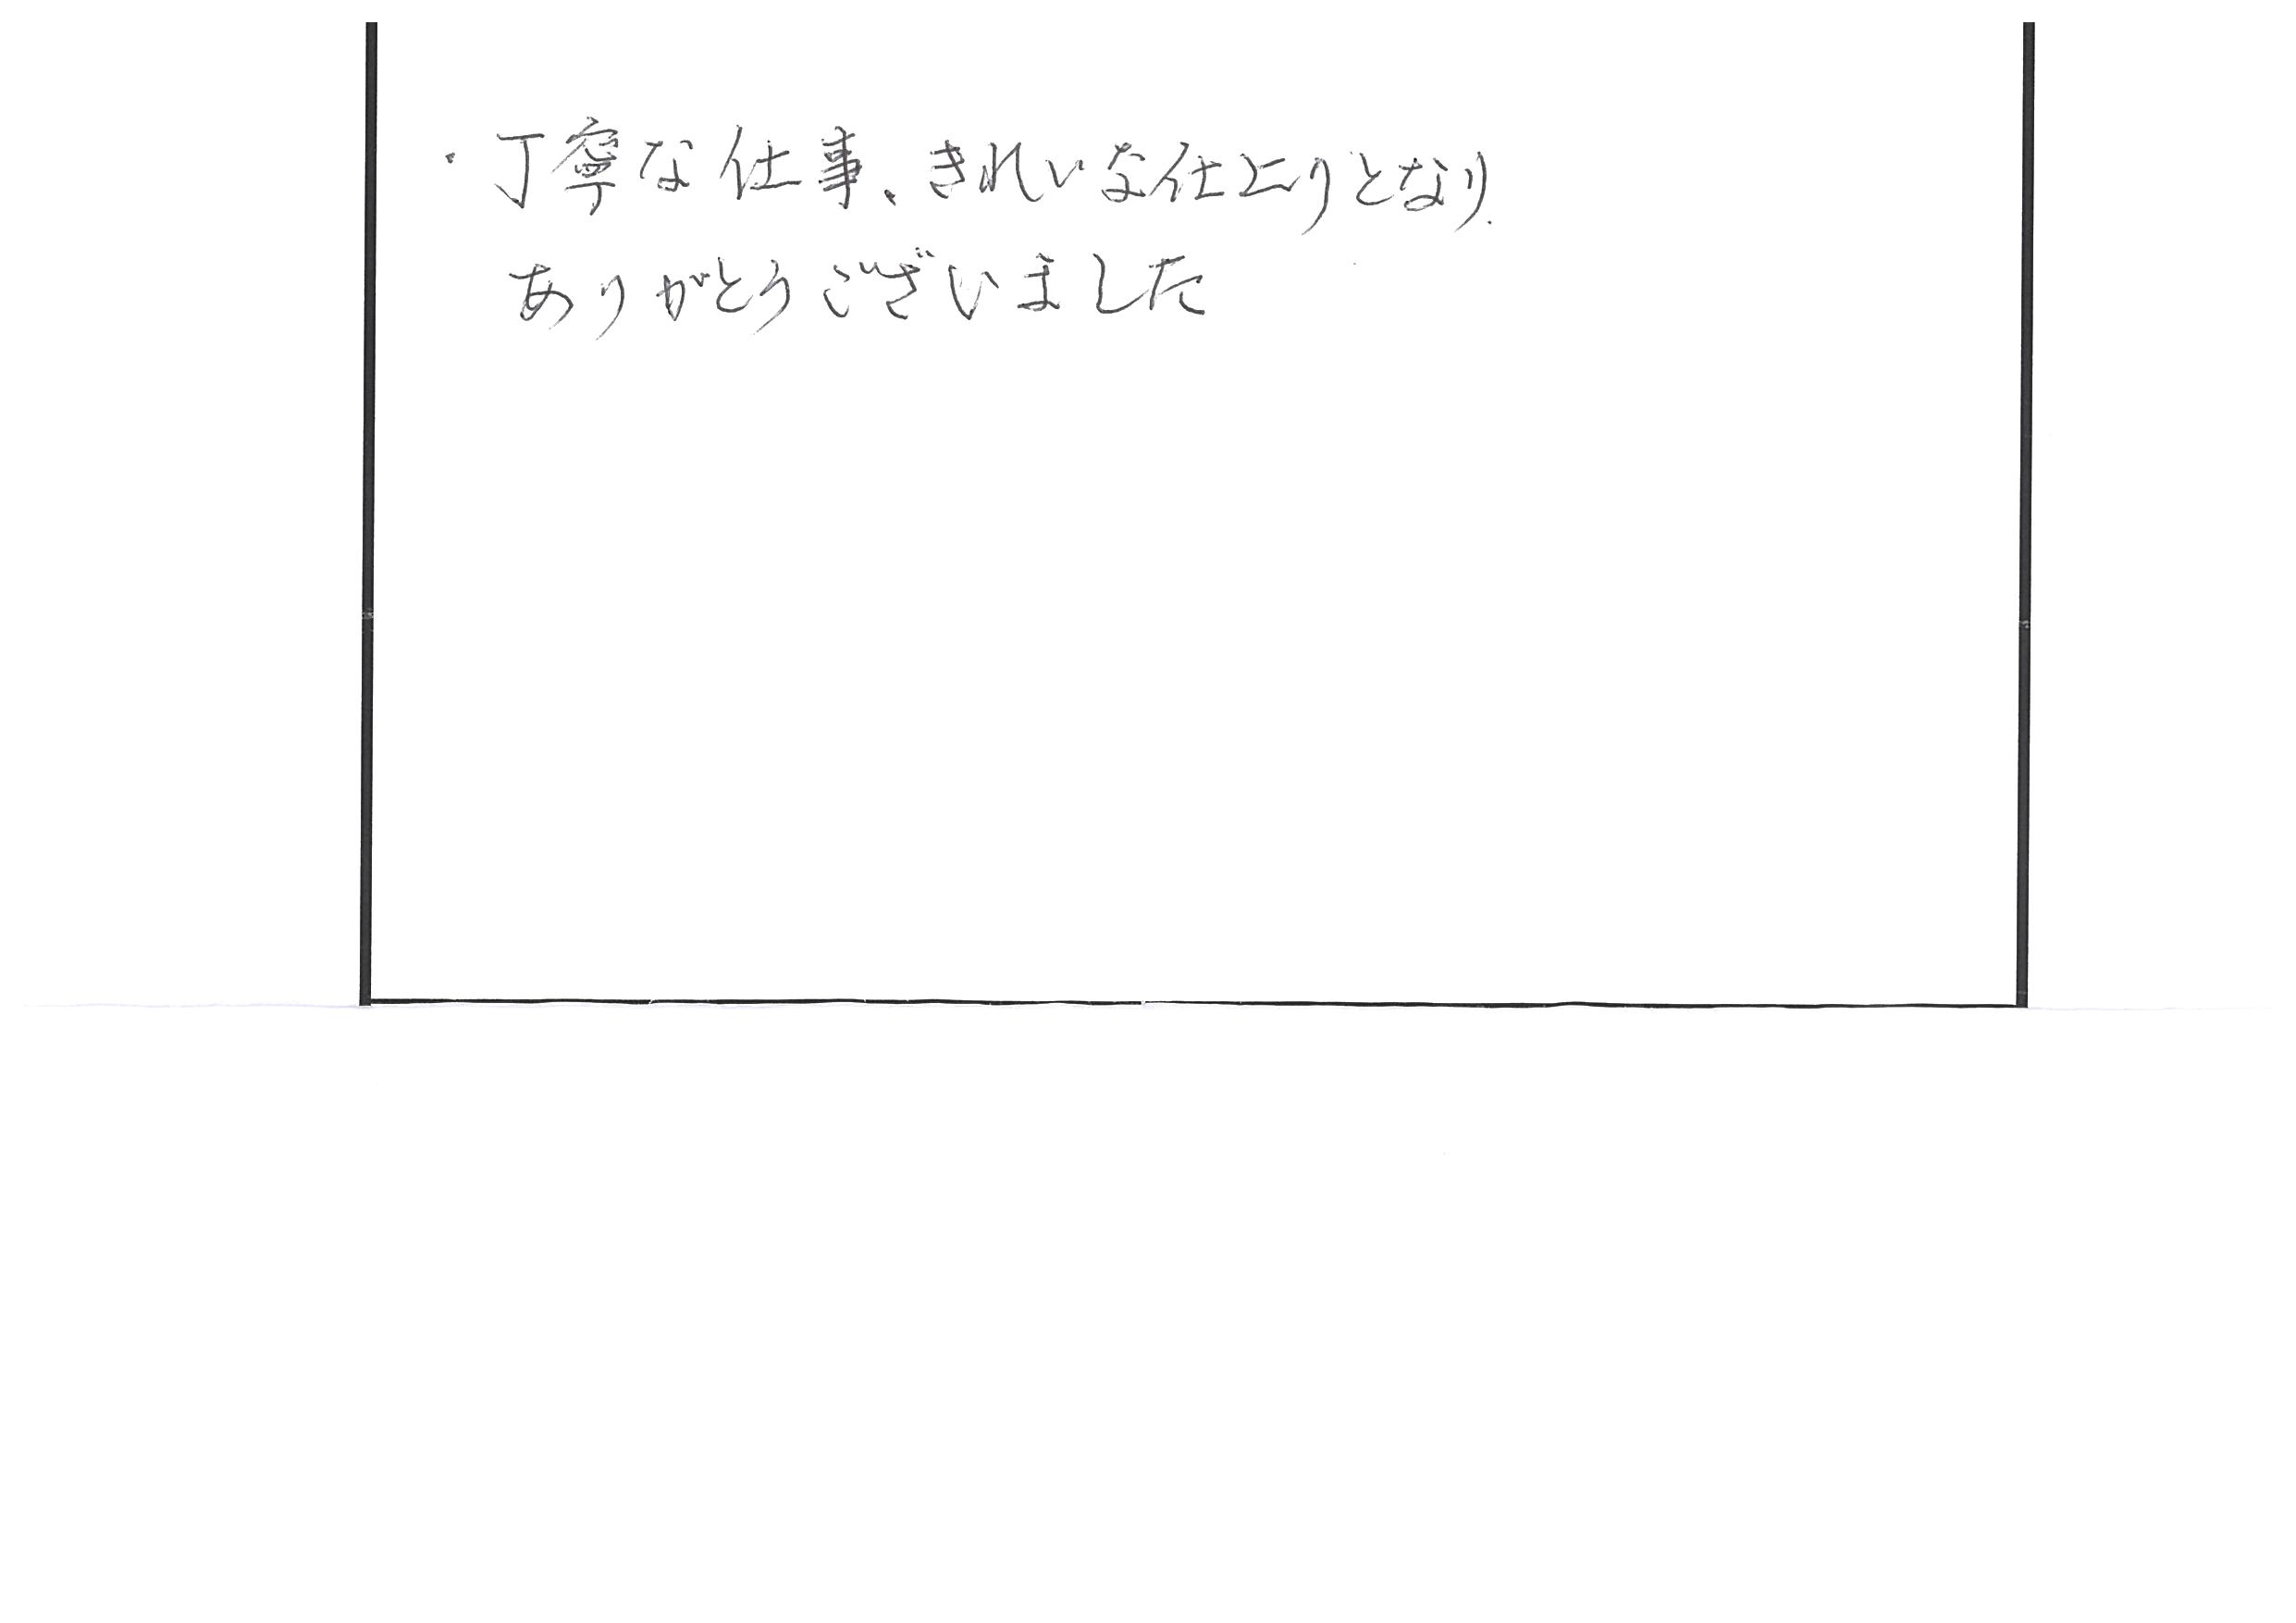 ・丁寧な仕事、きれいな仕上りとなり、
ありがとうございました